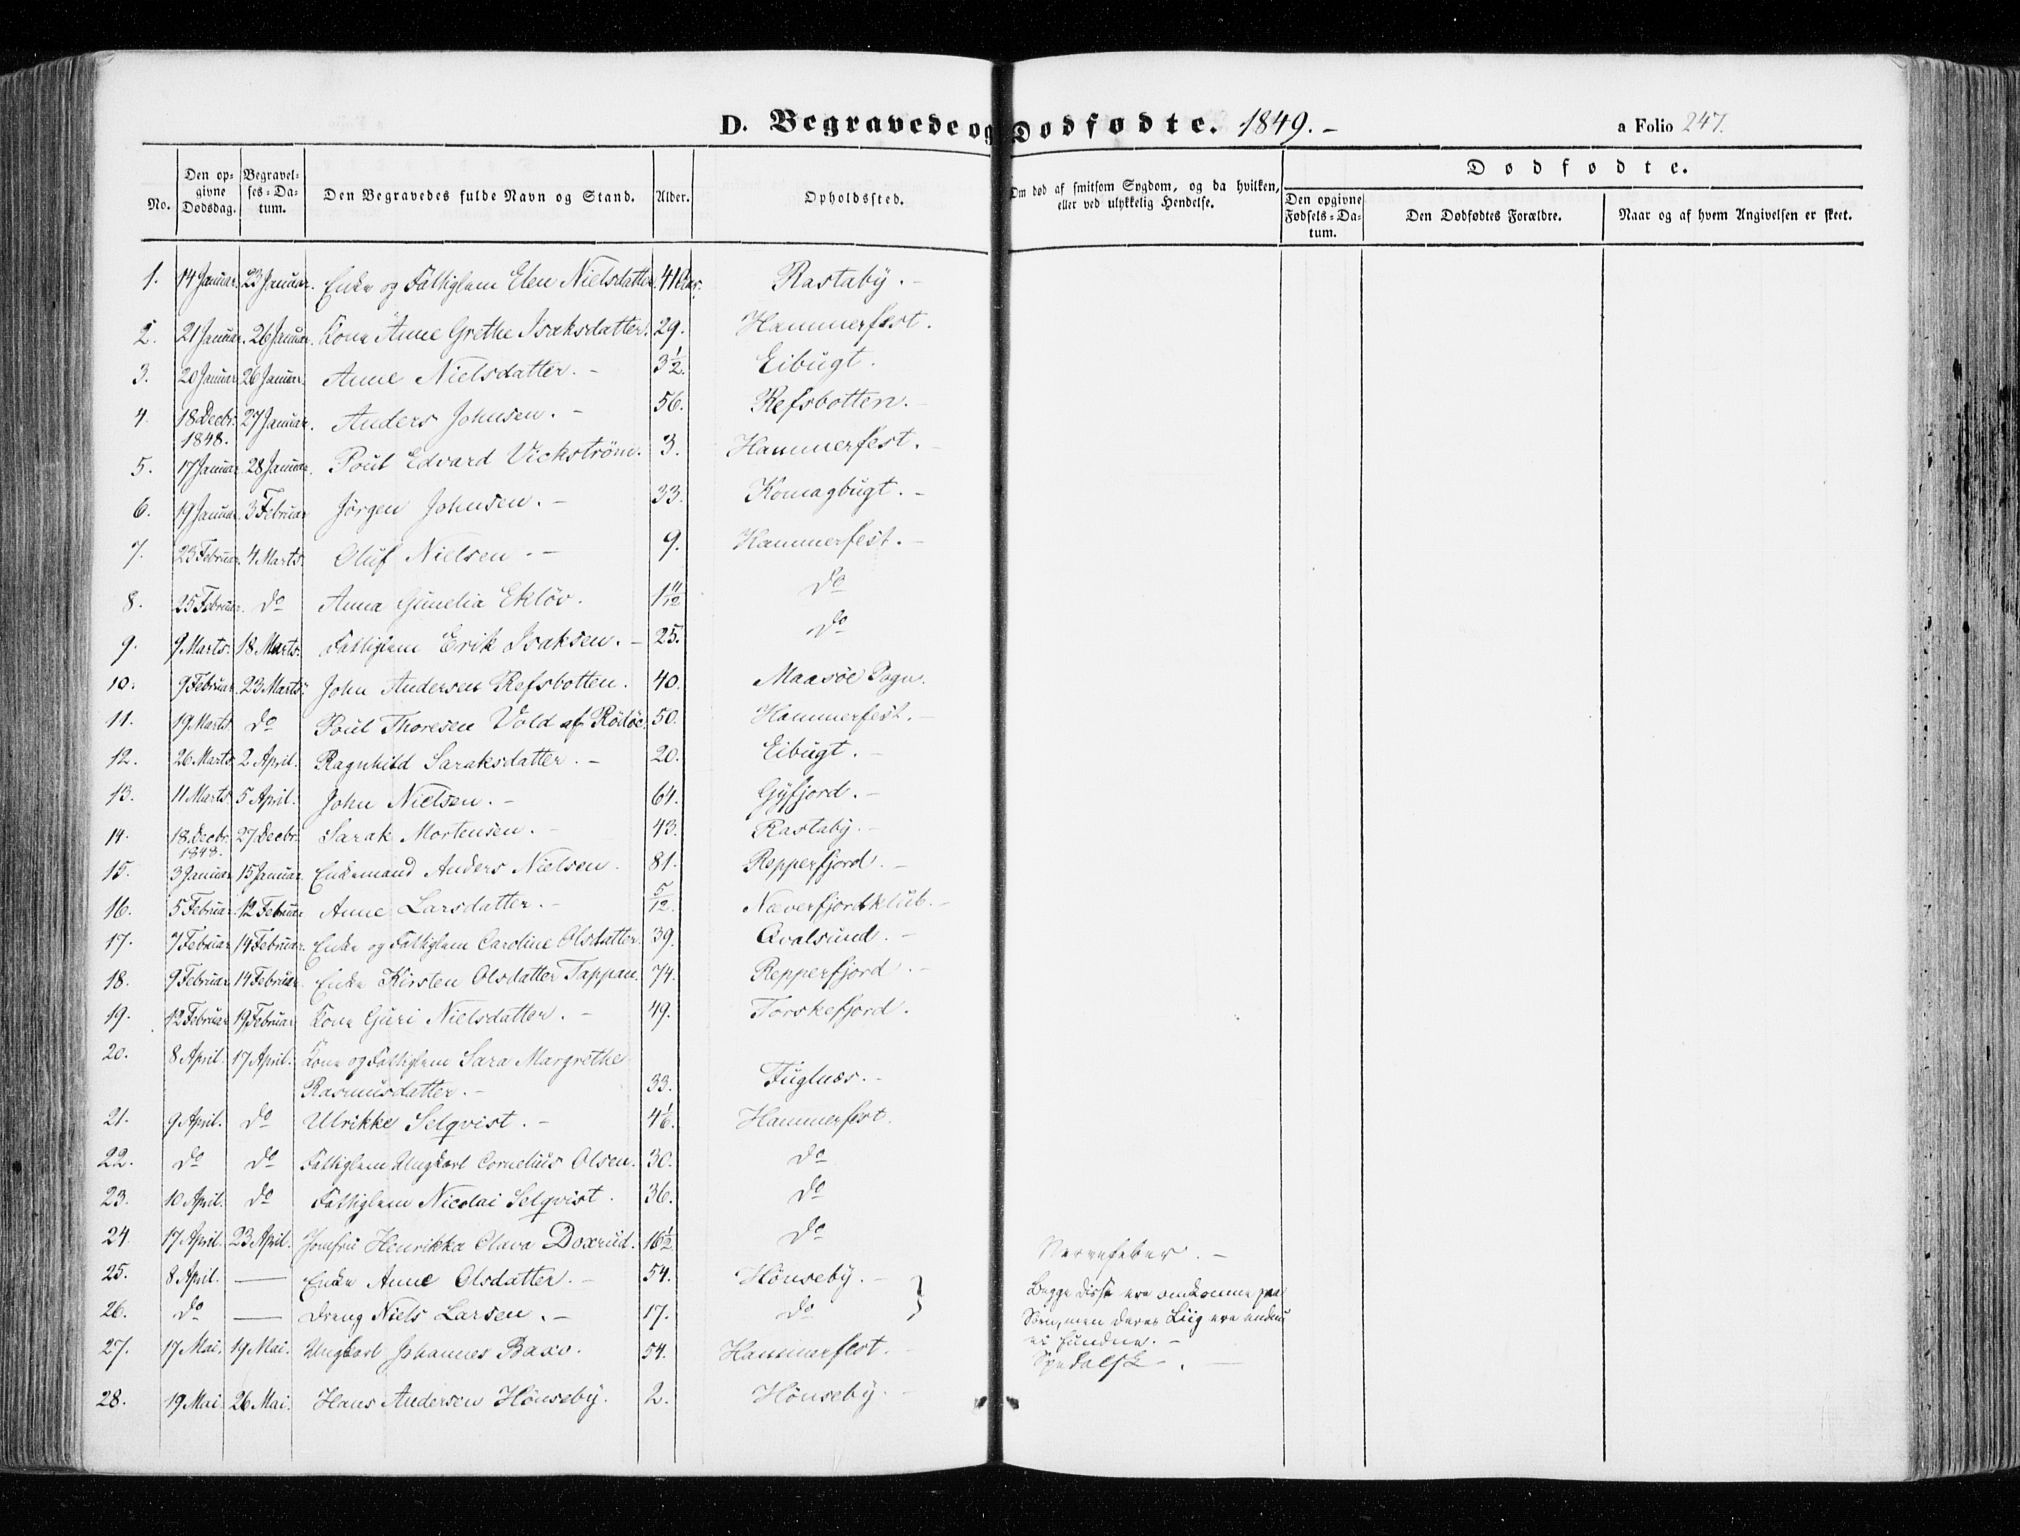 D. Begravede og Dødfødte. 1849. -
a Folio 247.
No.
Den opgivne Dødsdag.
Begravelses-Datum.
Den Begravedes fulde Navn og Stand.
Alder.
Opholdssted.
Om død af smitsom Sygdom, og da hvilken, eller ved ulykkelig Hendelse.
Dødfødte.
Den opgivne Fødsels-Datum.
Den Dødfødtes Forældre.
Naar og af hvem Angivelsen er skeet.
1. 14 Januar. 23 Januar. Enke og Fattiglem Elen Nielsdatter. 41 Rastaby. -
2. 21 Januar. 26 Januar. Kone Anne Grethe Isaksdatter. 29. Hammerfest.
3. 20 Januar 26 Januar. Anne Nielsdatter. - 3½. Eibugt.
4. 18 Decbr. 1848. 27 Januar. Anders Johnsen. - 56. Refsbotten. -
5. 17 Januar 28 Januar. Poul Edvard Vickström. 3. Hammerfest. -
6. 19 Januar. 3 Februar Jörgen Johnsen. - 33. Komagbugt. -
7. 23 Februar. 4 Marts. Oluf Nielsen. - 9. Hammerfest. -
8. 25 Februar. do Anna Gunelia Eklöv. 1 11/12 do
9. 9 Marts. 18 Marts. Fattiglem Erik Isaksen. - 25. do
10. 9 Februar. 23 Marts. John Andersen Refsbotten. 40. Maasöe Sogn.
11. 19 Marts do Poul Thoresen Vold af Rödöe. 50. Hammerfest. -
12. 26 Marts 2 April. Ragnhild Saraksdatter. - 20. Eibugt. -
13. 11 Marts 5 April. John Nielsen. - 64. Gyfjord. -
14. 18 Decbr. 1848. 27 Decbr. Sarak Mortensen. - 43. Rastaby. -
15. 3 Januar 15 Januar. Enkemand Anders Nielsen. 81. Repperfjord. -
16. 5 Februar. 12 Februar Anne Larsdatter. - 5/12. Næverfjordklub. -
17. 7 Februar 14 Februar. Enke og Fattiglem Caroline Olsdatter. 39. Qvalsund. -
18. 9 Februar 14 Februar. Enke Kirsten Olsdatter Tappan. 74. Repperfjord. -
19. 12 Februar 19 Februar Kone Guri Nielsdatter. - 49. Torskefjord.
20. 8 April. 17 April. Kone og Fattiglem Sara Margrethe
Rasmusdatter. - 33. Fuglnæs. -
21. 9 April. do Ulrikke Selqvist. - 4 1/6. Hammerfest.
22. do do Fattiglem Ungkarl Cornelius Olsen. 30. do
23. 10 April. do Fattiglem Nicolai Selqvist. 36. do
24. 17 April. 23 April. Jomfru Henrikka Olava Doxrud. 16½ do Nervefeber. -
25. 8 April. — Enke Anne Olsdatter. - 54. Hönseby. -
26. do — Dreng Niels Larsen. - 17. do
Begge disse ere omkomne paa
Söen, men deres Liig ere endnu
ei fundne. -
27. 17 Mai. 19 Mai. Ungkarl Johannes Baxv. 54. Hammerfest. - Spedalsk -. —
28. 19 Mai 26 Mai. Hans Andersen Hönseby. 2. Hönseby. -